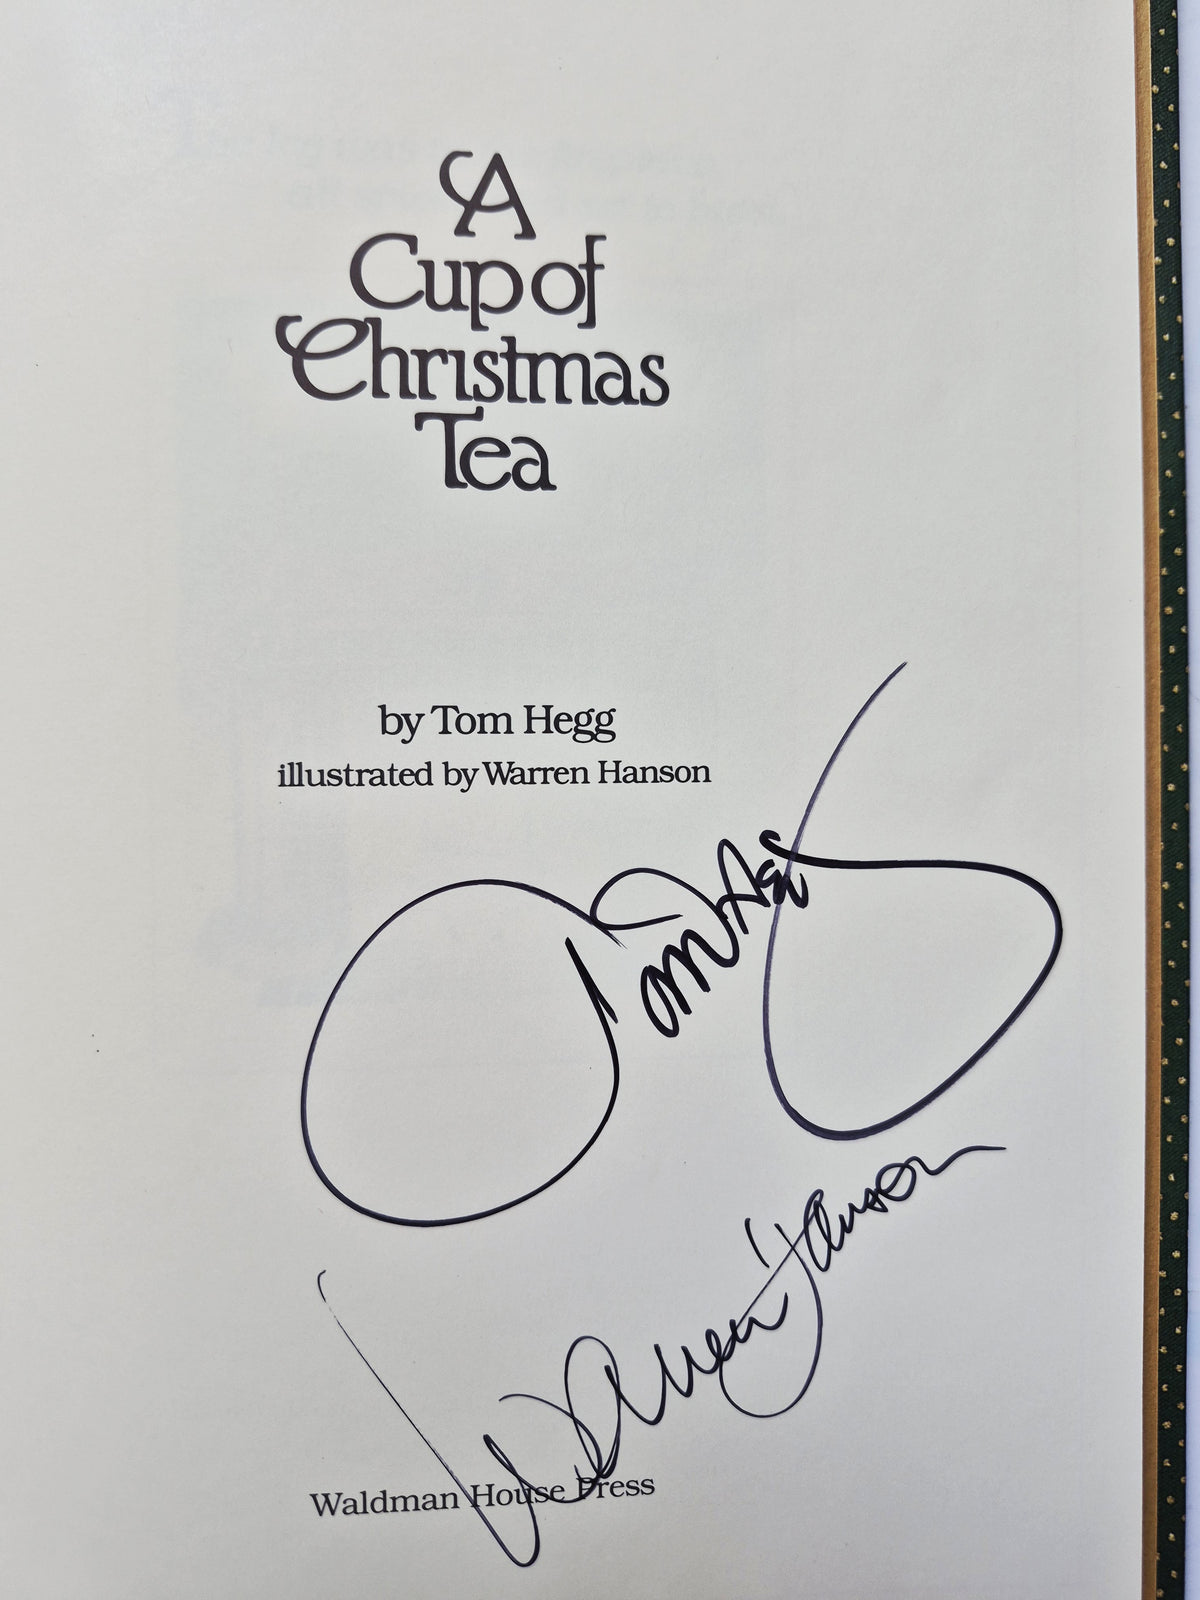 A
Cup of
Christmas
Tea
by Tom Hegg
illustrated by Warren Hanson
Tom Hegg
Warren Hanson
Waldman House Press